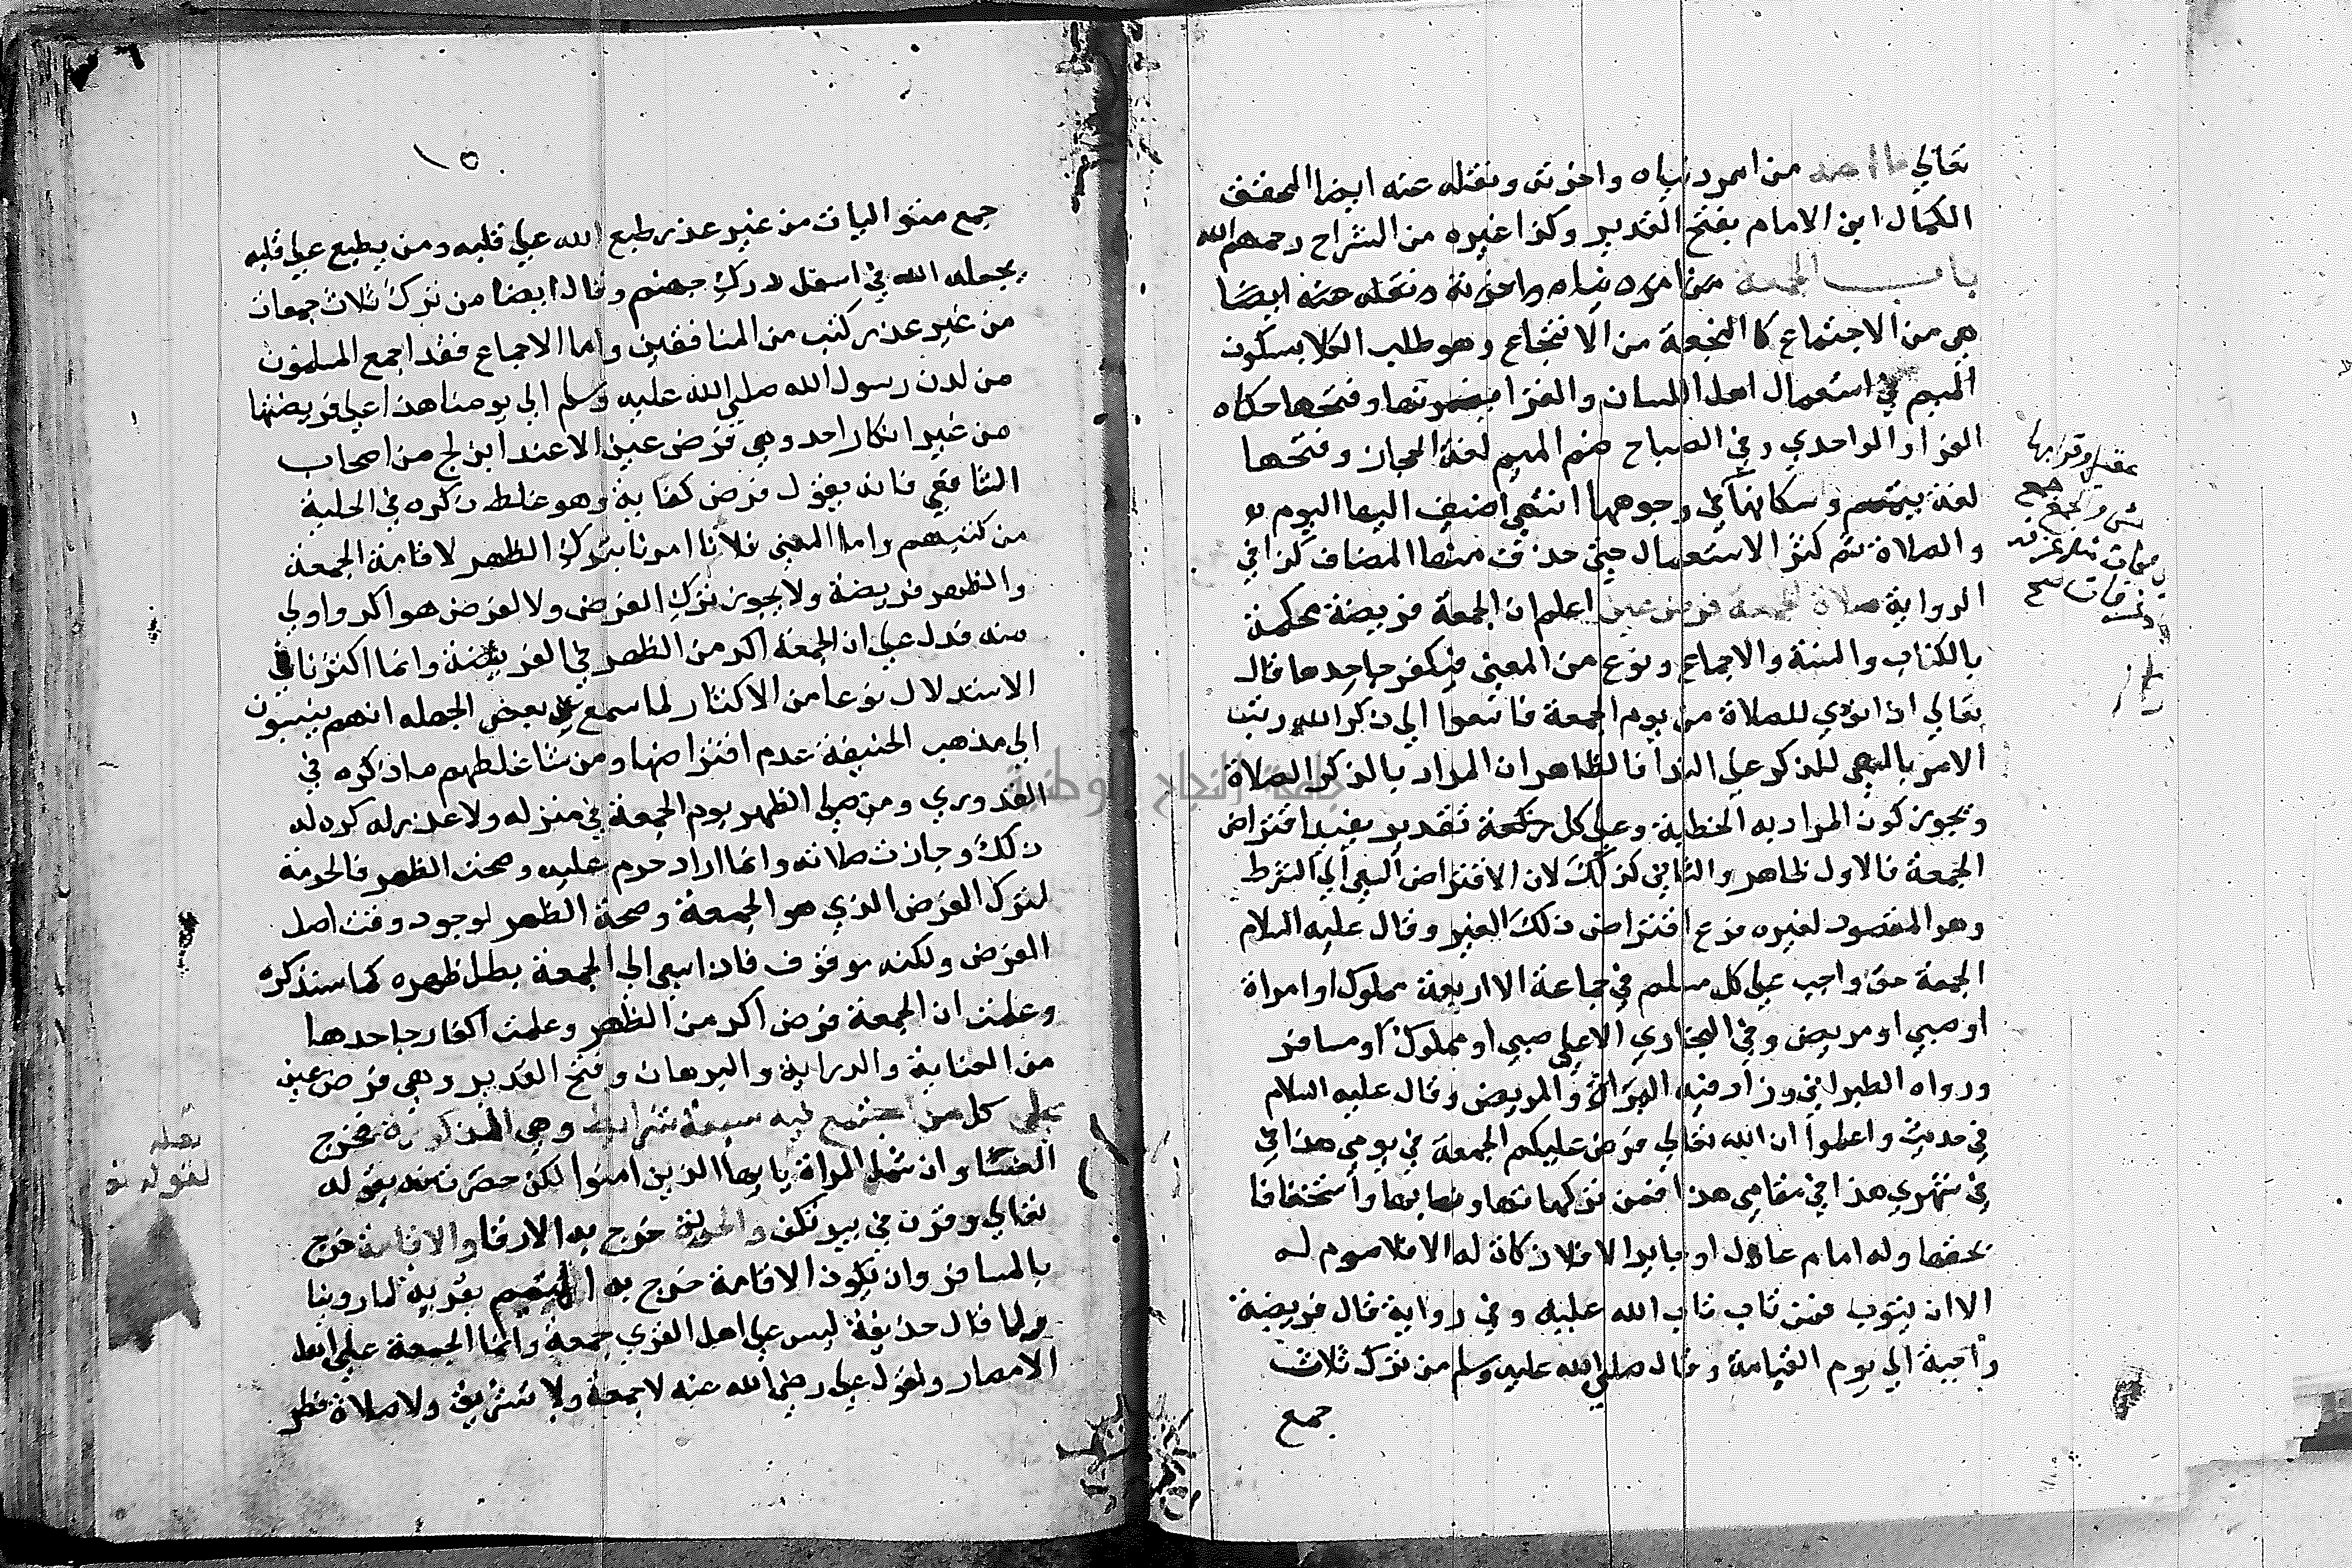 تعالى ما اهمه من امر دنياه واخرته ونقله عنه ايضا المحقق
الكمال ابن الامام بفتح القدير وكذا غيره من الشراح رحمهم الله
باب الجمعة من امر دنياه واخرته ونقله عنه ايضا
هي من الاجتماع كالنجعة من الانتجاع وهو طلب الكلا بسكون
الميم في استعمال اهل اللسان والقرا بضمتها وفتحها حكاه
الفرا والواحدي وفي الصباح ضم الميم لغة الحجاز وفتحها
لغة بيتميم واسكانها في وجوهها انتهى اضيف اليها اليوم
والصلاة ثم كثر الاستعمال حتى حذفت منها المضاف كذا في
الرواية صلاة الجمعة فرض عين اعلم ان الجمعة فريضة محكمة
بالكتاب والسنة والاجماع ونوع من المعنى فيكفر جاحدها قال
تعالي اذا نودي للصلاة من يوم الجمعة فاسعوا الي ذكر الله رتب
الامر بالسعي للذكر على الندا فالظاهر ان المراد بالذكر الصلاة
ويجوز كون المراد به الخطبة وعلي كل تقدير يفيد افتراض
الجمعة فالاول ظاهر والثاني كذلك لان الافتراض السعي الي الشرط
وهو المقصود لغيره فرع افتراض ذلك الغير وقال عليه السلام
الجمعة حق واجب علي كل مسلم في جماعة الا اربعة مملوك او امراة
او صبي او مريض وفي البخاري الا علي صبي او مملوك او مسافر
ورواه الطبراني وزاد فيه المراة والمريض وقال عليه السلام
في حديث واعلموا ان الله تعالي فرض عليكم الجمعة في يومي هذا في
في شهري هذا في مقامي هذا فمن تركها تهاونا بها واستخفافا
بحقها وله امام عادل او جاير الا فلا زكاة له الا فلا صوم له
الا ان يتوب فمن تاب تاب الله عليه وفي رواية قال فريضة
واجبة الي يوم القيامة وقال صلي الله عليه وسلم من ترك ثلاث
جمع
١٥
جمع متواليات من غير عذر طبع الله علي قلبه ومن يطبع علي قلبه
يجعله الله في اسفل درك جهنم وقال ايضا من ترك ثلاث جمعات
من غير عذر كتب من المنافقين واما الاجماع فقد اجمع المسلمون
من لدن رسول الله صلي الله عليه وسلم الي يومنا هذا علي فريضتها
من غير انكار احد وهي فرض عين الا عند ابن لج من اصحاب
الشافعي فانه يقول فرض كفاية وهو غلط ذكره في الحلية
من كتبهم واما المعنى فلانا امرنا بترك الظهر لاقامة الجمعة
والظهر فريضة ولا يجوز ترك الفرض ولا لفرض هو اكد واولي
منه فدل علي ان الجمعة اكد من الظهر في الفريضة وانما اكثرنا في
الاستدلال نوعا من الاكثار لما سمع عن بعض الجهله انهم ينسبون
الي مذهب الحنيفة عدم افتراضها ومنشا غلطهم ما ذكره في
القدوري ومن صلي الظهر يوم الجمعة في منزله ولا عذر له كره له
ذلك وجازت صلاته وانما اراد حرم عليه وصحت الظهر فالحرمة
لترك الفرض الذي هو الجمعة وصحة الظهر لوجود وقت اصل
الفرض ولكنه موقوف فاذا سعي الي الجمعة بطل ظهره كما سنذكره
وعلمت ان الجمعة فرض اكد من الظهر وعلمت اكفار جاحدها
من العناية والدراية والبرهان وفتح القدير وهي فرض عين
علي كل من اجتمع فيه سبعة شرايط وهي الذكورة فخرج
النسا وان شمل المراة يا يها الذين امنوا لكن خصرتا منه بقوله
تعالي وقرن في بيوتكن والحرية خرج به الارقا والاقامة خرج
بالمسافر وان تكون الاقامة خرج به المقيم بقرية لما روينا
ولما قال حذيفة ليس علي اهل القري جمعة وانما الجمعة علي اهل
الامصار ولقول علي رضي الله عنه لا جمعة ولا تشريق ولا صلاة فطر
جامعة النجاح الوطنية